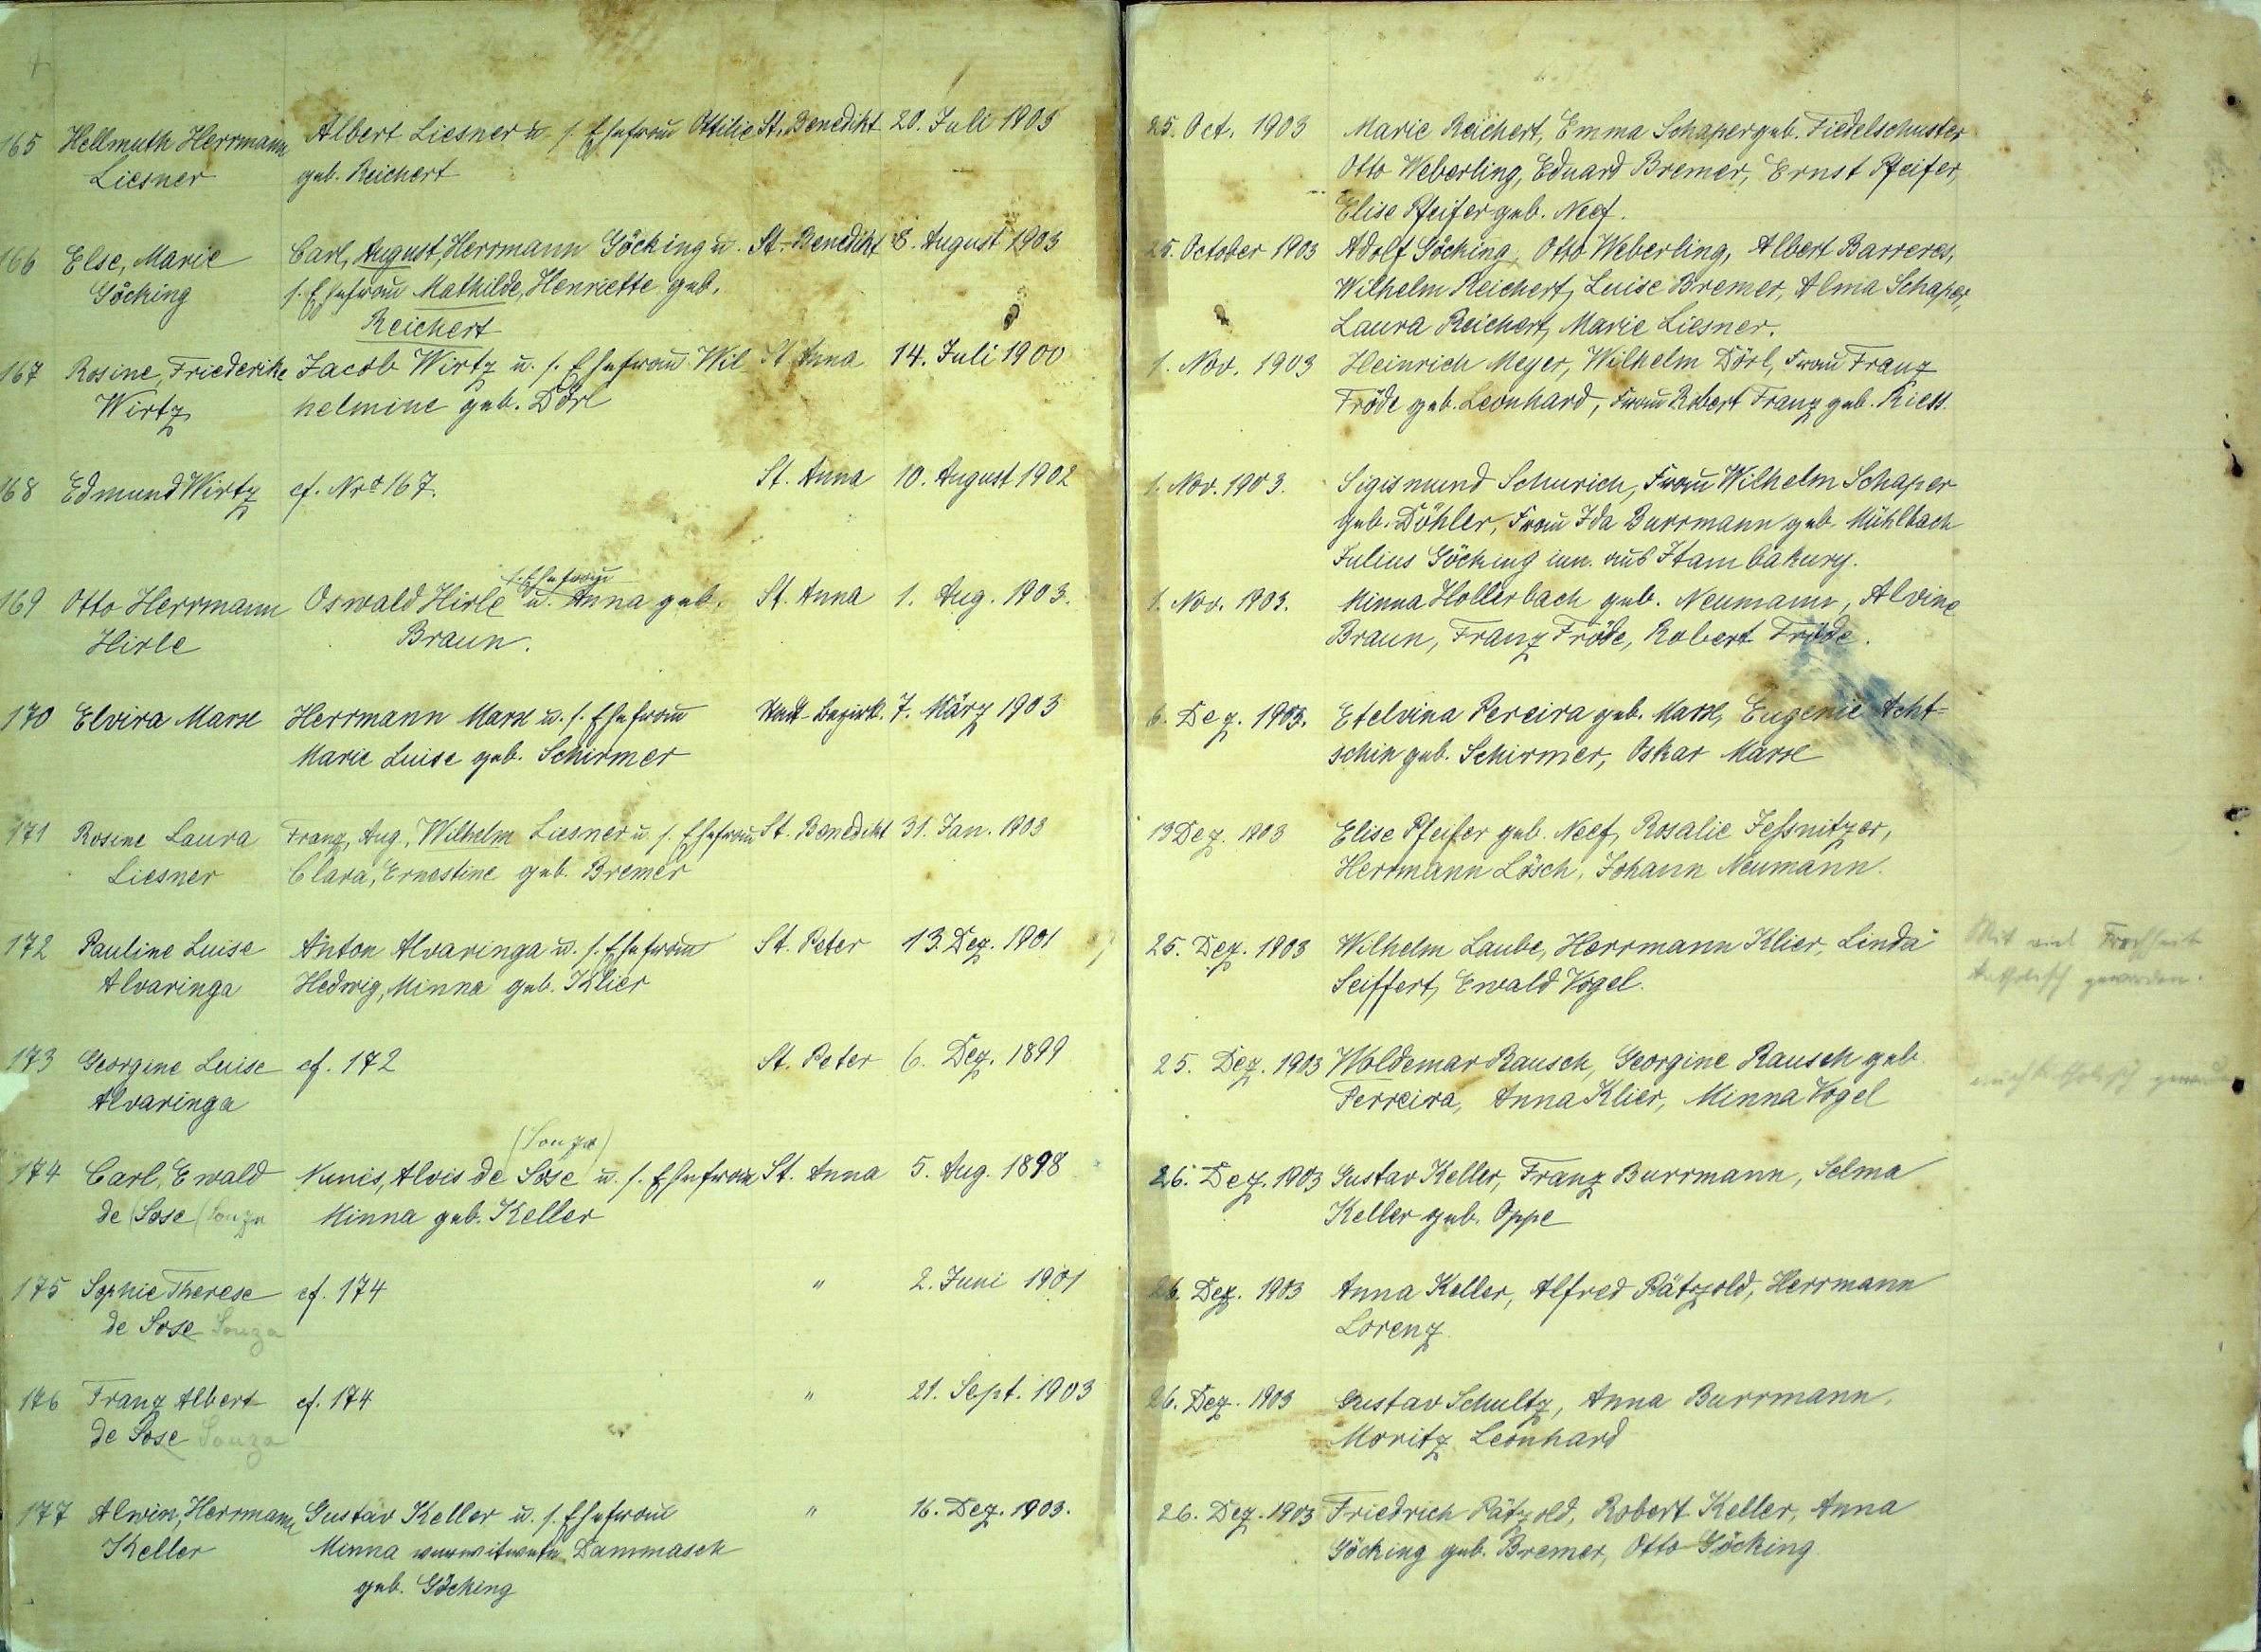 165 Hellmuth Herrmann Albert Liesner u. s. Ehefrau Ottilie St. Benedikt 20. Juli 1903 25. Oct. 1903 Marie Reichert, Emma Schaper geb. Fiedelschuster
Liesner geb. Reichert Otto Weberling, Eduard Bremer, Ernst Pfeifer,
Elise Pfeifer geb. Neef.
166 Else, Marie Carl, August, Herrmann Göcking u. St. Benedikt 8. August 1903 25. October 1903 Adolf Göcking, Otto Weberling, Albert Barreres,
Göcking s. Ehefrau Mathilde, Henriette geb. Wilhelm Reichert, Luise Bremer, Alma Schaper,
Reichert Laura Reichert, Marie Liesner.
167 Rosine, Friederike Jacob Wirtz u. s. Ehefrau Wil St. Anna 14. Juli 1900 1. Nov. 1903 Heinrich Meyer, Wilhelm Dörl, Frau Franz
Wirtz helmine geb. Dörl Fröde geb. Leonhard, Frau Robert Franz geb. Riess.
168 Edmund Wirtz cf. Nro 167. St. Anna 10. August 1902 1. Nov. 1903. Sigismund Schurich, Frau Wilhelm Schaper
geb. Döhler, Frau Ida Burrmann geb. Mühlbach
Julius Göcking jun. aus Itambakury.
s. Ehefrau
169 Otto Herrmann Oswald Hirle u. Anna geb. St. Anna 1. Aug. 1903. 1. Nov. 1903. Minna Hollerbach geb. Neumann, Alvine
Hirle Braun. Braun, Franz Fröde, Robert Fröde.
170 Elvira Marx Herrmann Marx u. s. Ehefrau Bezirk. 7. März 1903 6. Dez. 1903. Etelvina Pereira geb. Marx, Eugenie Acht-
Marie Luise geb. Schirmer schin geb. Schirmer, Oskar Marx
171 Rosine Laura Franz, Aug., Wilhelm Liesner u. s. Ehefrau St. Benedikt 31. Jan. 1903 13 Dez. 1903 Elise Pfeifer geb. Neef, Rosalie Jeßnitzer,
Liesner Clara, Ernestine geb. Bremer Herrmann Lösch, Johann Neumann.
172 Pauline Luise Anton Alvaringa u. s. Ehefrau St. Peter 13. Dez. 1901 25. Dez. 1903 Wilhelm Laube, Herrmann Klier, Linda Mit viel Frechheit
Alvaringa Hedwig, Minna geb. Klier Seiffert, Ewald Vogel. katholisch geworden.
173 Georgine Luise cf. 172 St. Peter 6. Dez. 1899 25. Dez. 1903 Woldemar Rausch, Georgine Rausch geb. auch katholisch
Alvaringa Ferreira, Anna Klier, Minna Vogel
(Souza)
174 Carl, Ewald Nunes, Alvis de Sose u. s. Ehefrau St. Anna 5. Aug. 1898 26. Dez. 1903 Gustav Keller, Franz Burrmann, Selma
de (Sose (Souza Minna geb. Keller Keller geb. Oppe
175 Sophie Therese cf. 174 " 2. Juni 1901 26. Dez. 1903 Anna Keller, Alfred Pätzold, Herrmann
de Sose Souza Lorenz
176 Franz Albert cf. 174 " 21. Sept. 1903 26. Dez. 1903 Gustav Schultz, Anna Burrmann,
de Sose Souza Moritz Leonhard
177 Alwin, Herrmann Gustav Keller u. s. Ehefrau " 16. Dez. 1903. 26. Dez. 1903 Friedrich Pätzold, Robert Keller, Anna
Keller Minna verwitwete Dammasch Göcking geb. Bremer, Otto Göcking
geb. Göcking